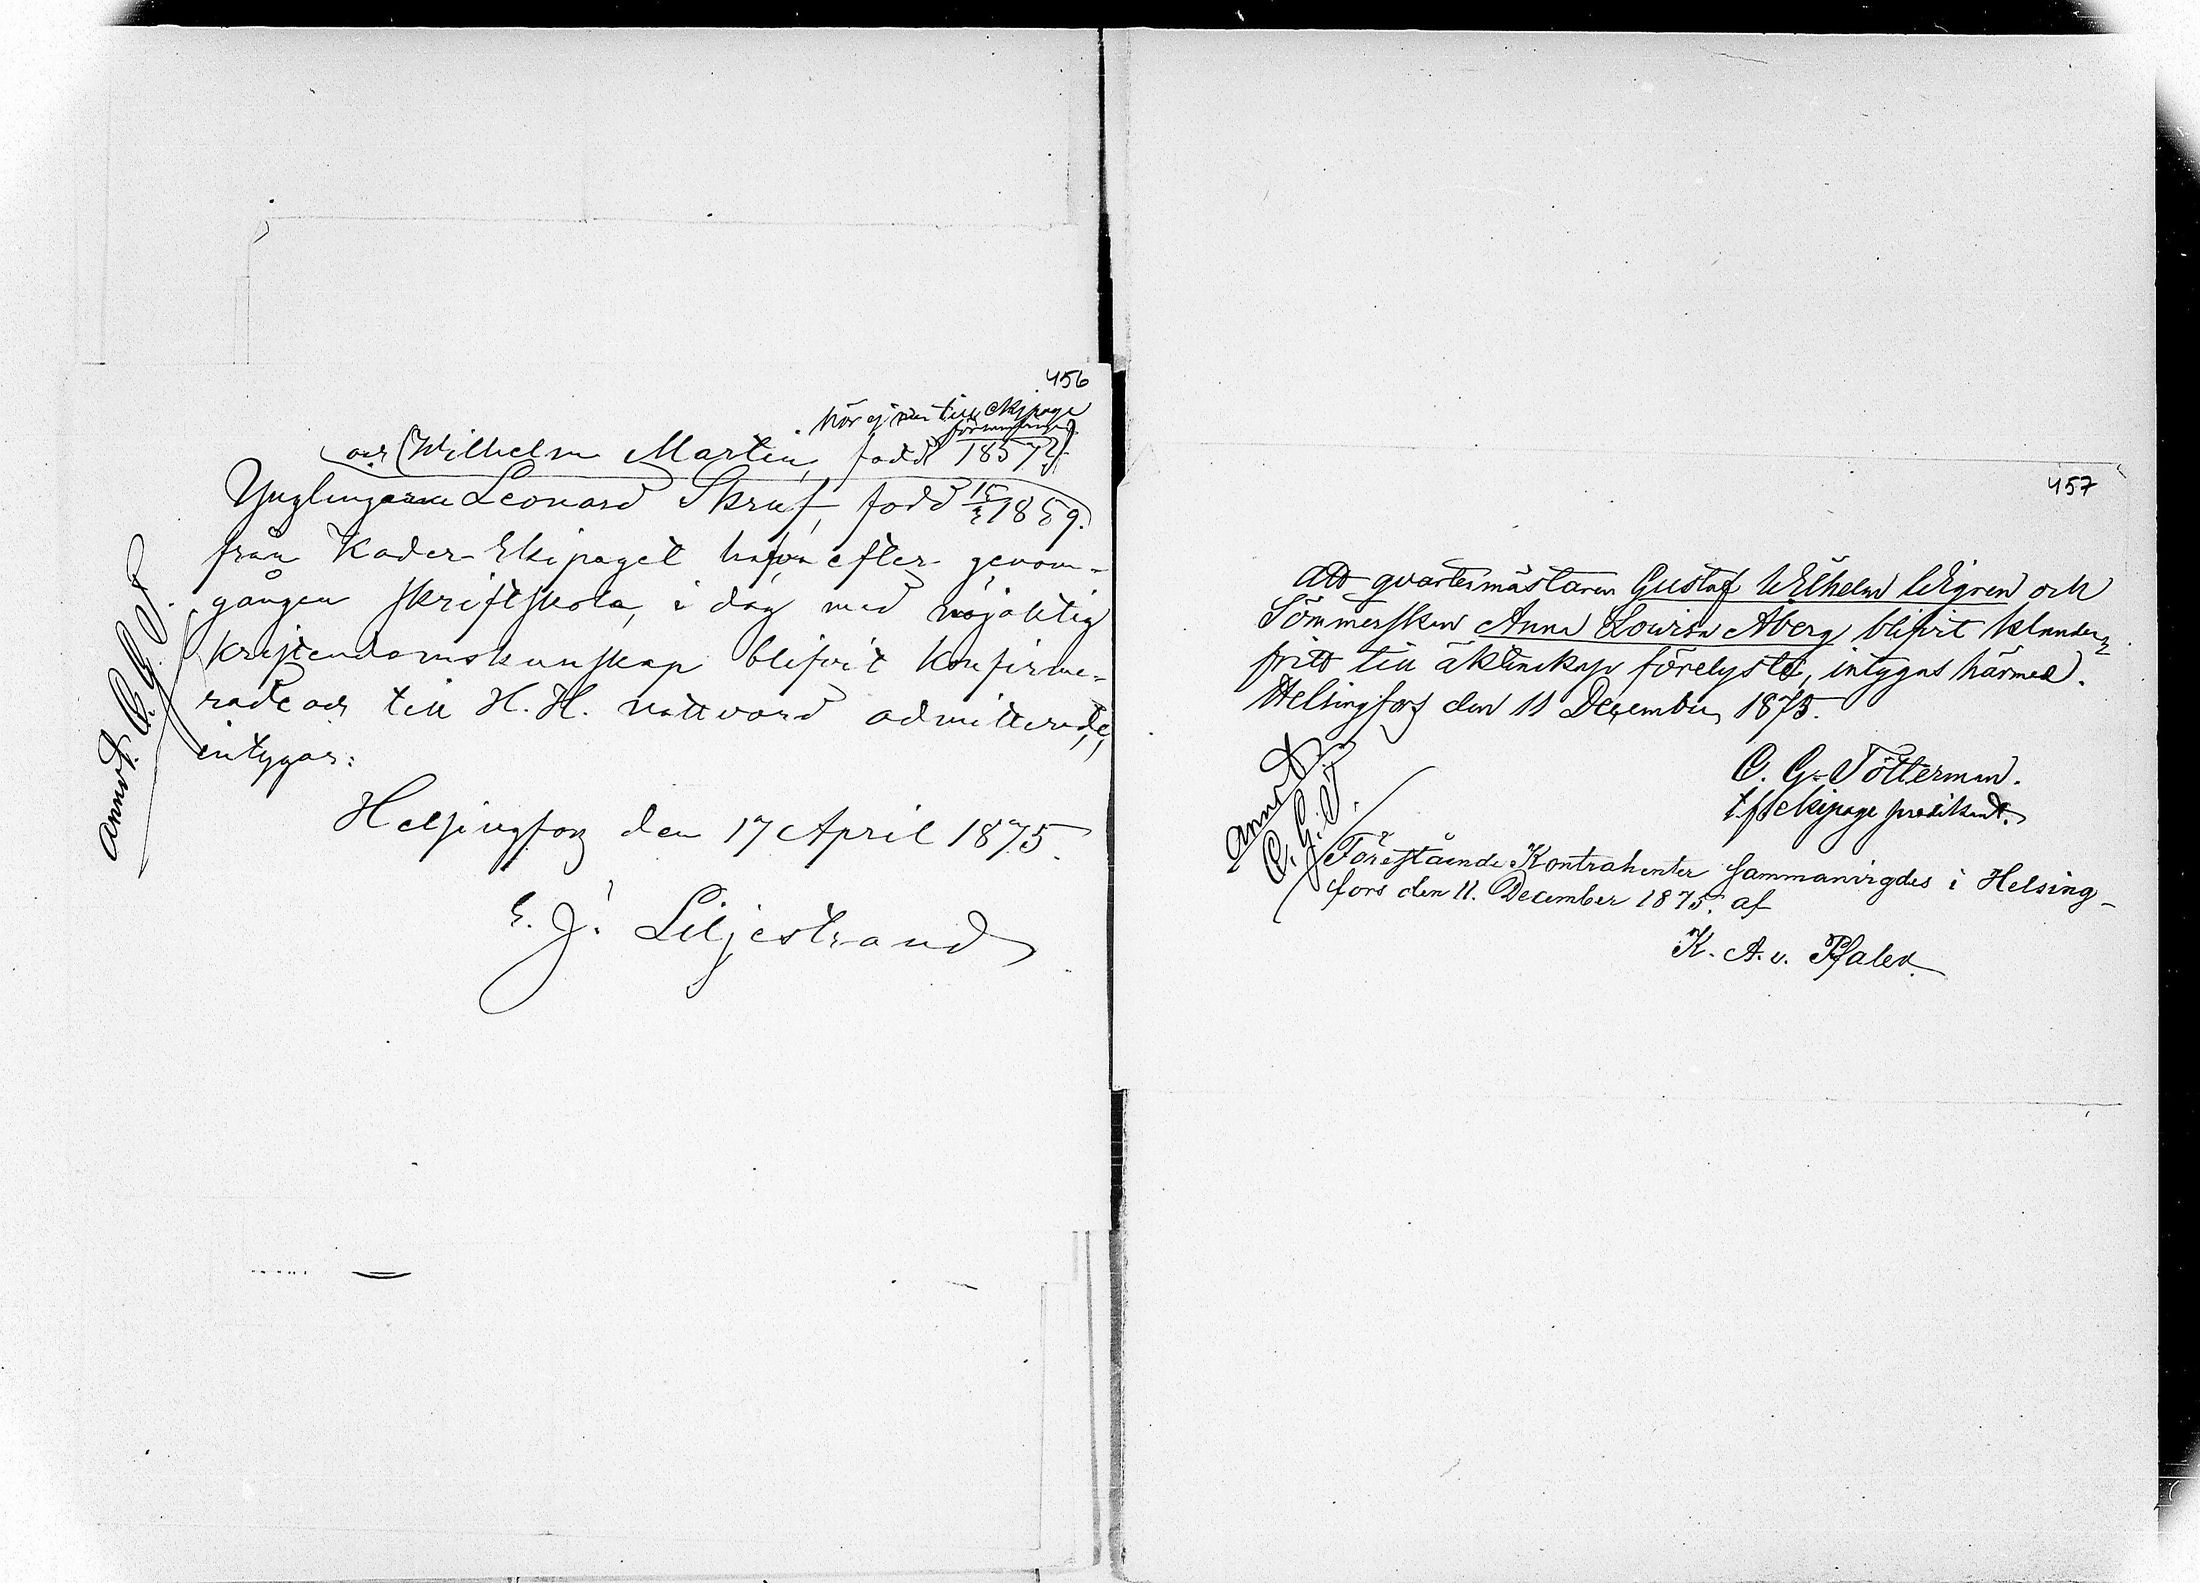 456
hör ej till ekipage
församlingen
och (Wilhelm Martin, född 1857)
Ynglingarne Leonard Skruf, född 1859.
från Kader Ekipaget hafva efter genom-
gången skriftskola, i dag med nöjaktig
kristendomskunskap blifvit konfirme-
rade och till H. H. nattvard admitterade,
intygar:
Helsingfors den 17 April 1875.
E. J. Liljestrand
annot. C. G. T.
457
Att qvartermästaren Gustaf Wilhelm Wigren och
Sömmerskan Anna Lowisa Åberg blifvit klander-
fritt till äktenskap förelyste, intygas härmed.
Helsingfors den 11 December 1875.
C. G. Tötterman.
t.f. ekipage predikant.
annot.
C. G. T.
Förestående Kontrahenter sammanvigdes i Helsing-
fors den 11. December 1875. af
K. A. v. Pfaler.